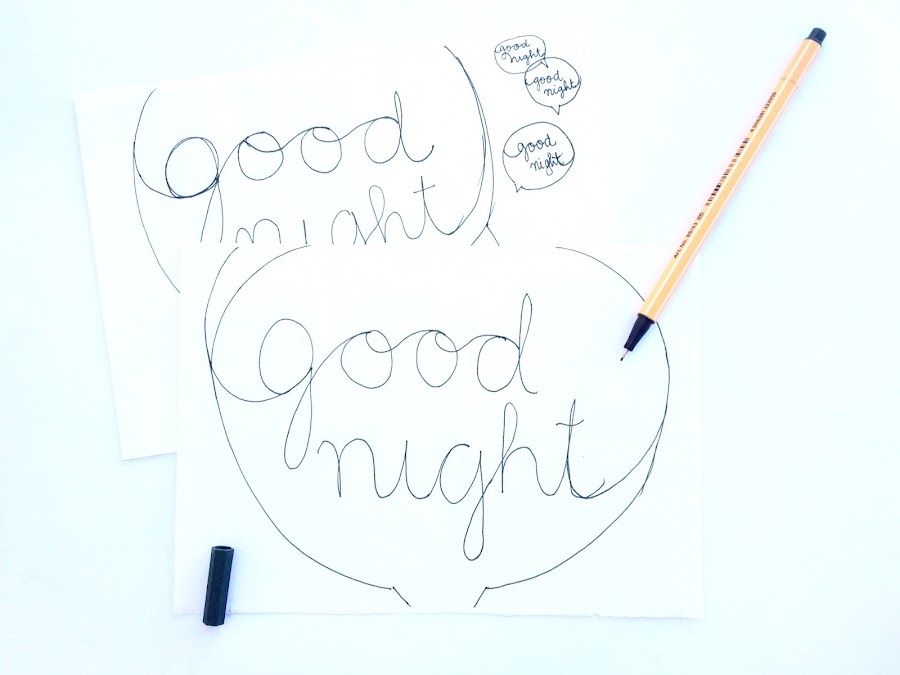 good
night
good
night
good
night
good
night
good
night